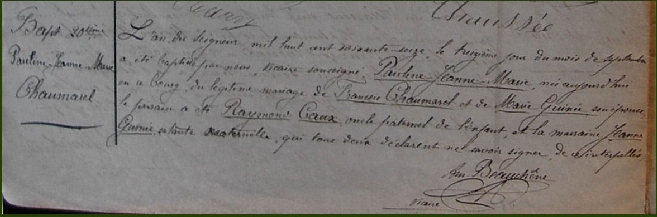 Chaussée
Bapt. 20ème
Pauline Jeanne-Marie
Chaumarel
L'an du Seigneur, mil huit cent soixante-seize, le treizième jour du mois de septembre
a été baptisée par nous, vicaire soussigné, Pauline Jeanne-Marie, née aujourd'hui
au a Coucy, du légitime mariage de François Chaumarel et de Marie Guinié son épouse
le parrain a été Raymond Caux oncle paternel de l'enfant, et la marraine Jeanne
Guinié, et tante maternelle, qui tous deux déclarent ne savoir signer, de ce interpellés
vicaire